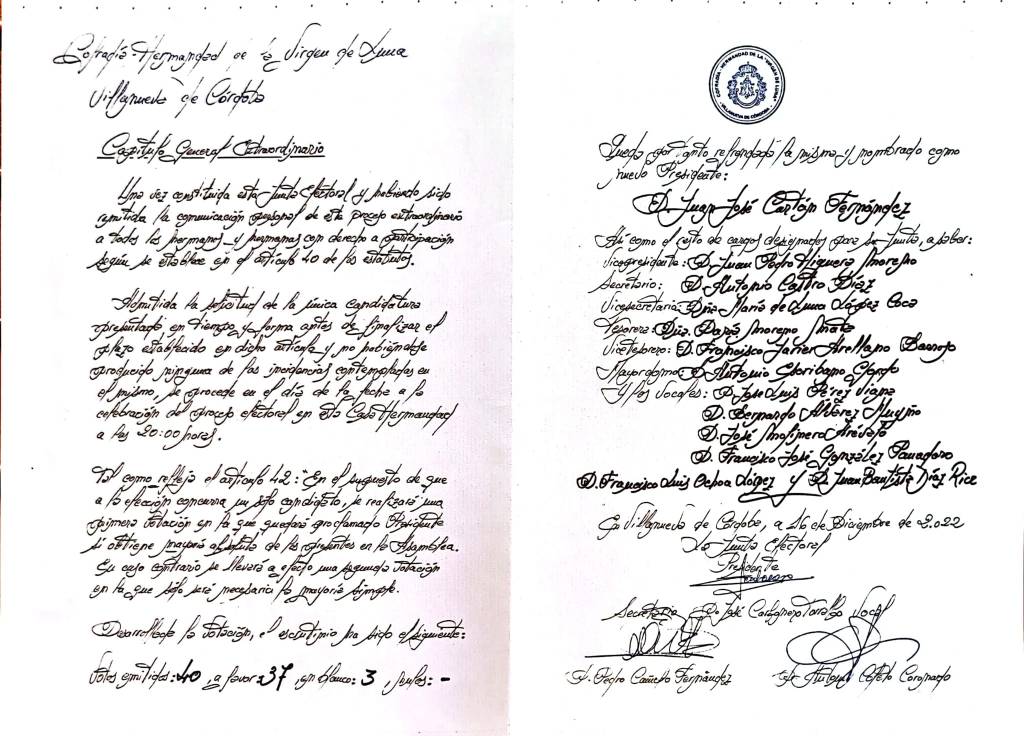 Cofradía-Hermandad de la Virgen de Luna
Villanueva de Córdoba
Capítulo General Extraordinario
Una vez constituida esta Junta Electoral y habiendo sido
remitida la comunicación personal de este proceso extraordinario
a todos los hermanos y hermanas con derecho a participación
según se establece en el artículo 40 de los estatutos.
Admitida la solicitud de la única candidatura
presentada en tiempo y forma antes de finalizar el
plazo establecido en dicho artículo y no habiéndose
producido ninguna de las incidencias contempladas en
el mismo, se procede en el día de la fecha a la
celebración del proceso electoral en esta Casa Hermandad
a las 20:00 horas.
Tal como refleja el artículo 42: "En el supuesto de que
a la elección concurra un solo candidato, se realizará una
primera votación en la que quedará proclamado Presidente
si obtiene mayoría absoluta de los presentes en la Asamblea.
En caso contrario se llevará a efecto una segunda votación
en la que sólo será necesaria la mayoría simple.
Desarrollada la votación, el escrutinio ha sido el siguiente:
Votos emitidos: 40, a favor: 37, en blanco: 3, nulos: -
COFRADÍA - HERMANDAD DE LA "VIRGEN DE LUNA"
VILLANUEVA DE CÓRDOBA
Queda por tanto refrendada la misma y nombrado como
nuevo Presidente:
D. Juan José Cantón Fernández
Así como el resto de cargos designados para su Junta, a saber:
Vicepresidente: D. Juan Pedro Higuera Moreno
Secretario: D. Antonio Castro Díaz
Vicesecretaria: Dña María de Luna López Coca
Tesorera: Dña. Moreno
Vicetesorero: D. Francisco Javier Arellano Barroso
Mayordomo: D. Antonio Escribano
Y los vocales: D. José Luis Pérez
D. Bernardo Álvarez
D. José Molinero Arévalo
D. Francisco José González Panadero
D. Francisco Luis Ochoa López y D. Juan Bautista Díaz Rico
En Villanueva de Córdoba, a 16 de Diciembre de 2.022
La Junta Electoral
Presidente
Secretario D. José Vocal
D. Pedro Cañuelo Fernández
Antonio Coronado